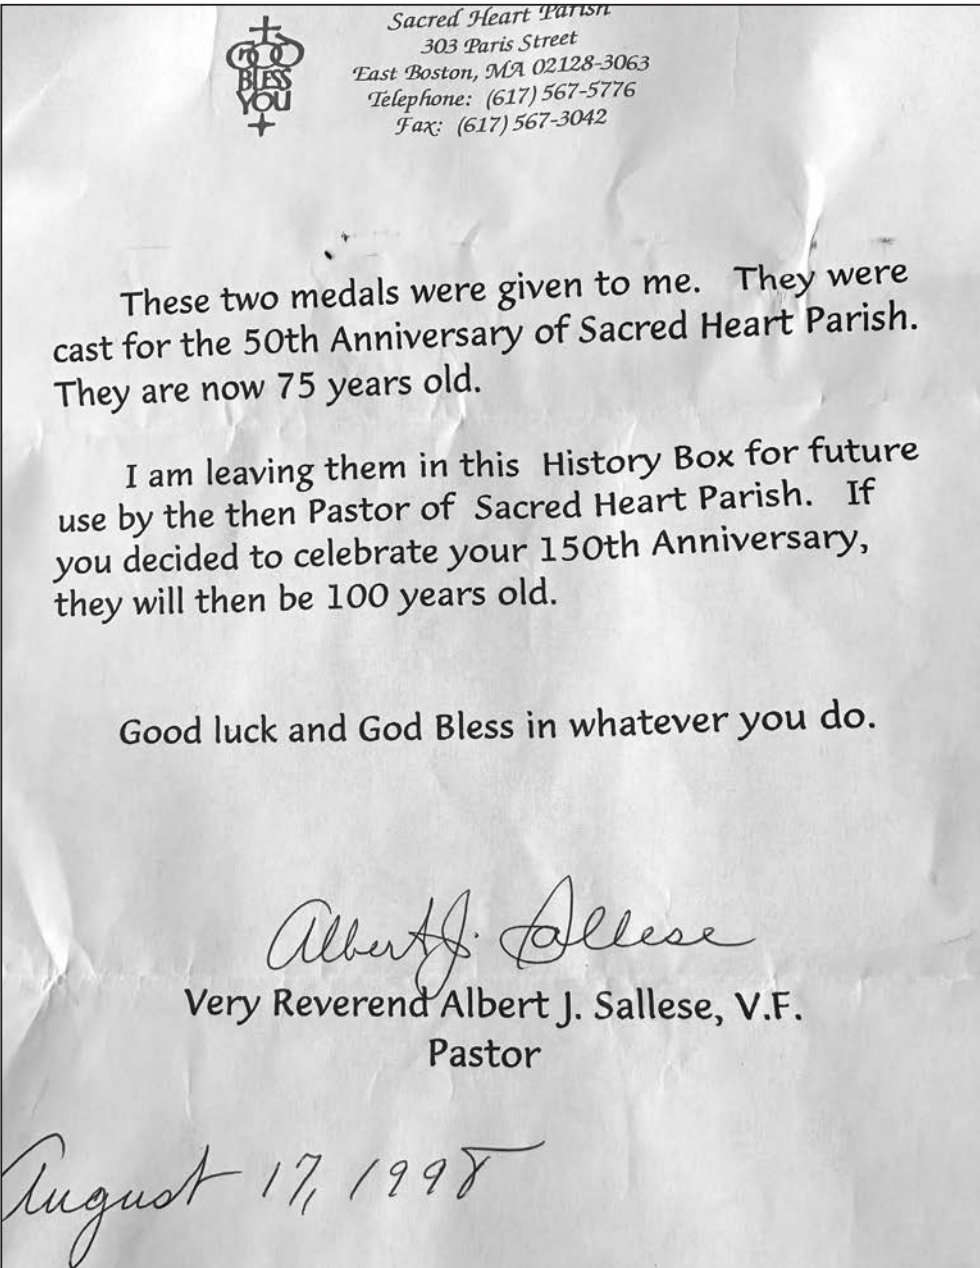 GOD
BLESS
YOU
Sacred Heart Parish
303 Paris Street
East Boston, MA 02128-3063
Telephone: (617) 567-5776
Fax: (617) 567-3042
These two medals were given to me. They were
cast for the 50th Anniversary of Sacred Heart Parish.
They are now 75 years old.
I am leaving them in this History Box for future
use by the then Pastor of Sacred Heart Parish. If
you decided to celebrate your 150th Anniversary,
they will then be 100 years old.
Good luck and God Bless in whatever you do.
Albert J. Sallese
Very Reverend Albert J. Sallese, V.F.
Pastor
August 17, 1998